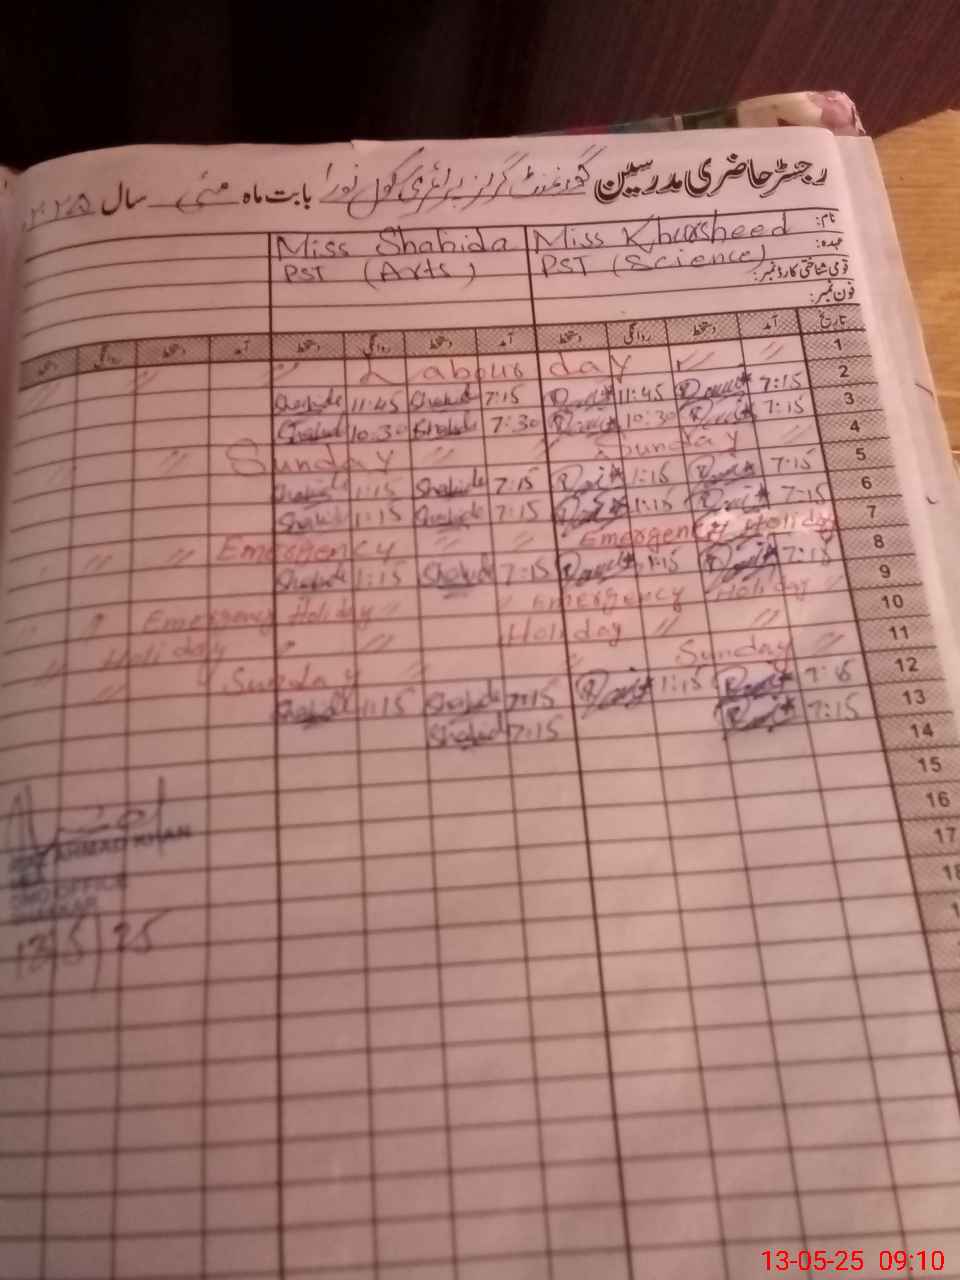 رجسٹر حاضری مدرسین گورنمنٹ گرلز پرائمری سکول نورا بابت ماہ مئی سال ۲۰۲۵
نام: Miss Khursheed Miss Shahida
عہدہ: PST (Science) PST (Arts)
قومی شناختی کارڈ نمبر:
فون نمبر:
تاریخ آمد دستخط روانگی دستخط آمد دستخط روانگی دستخط آمد دستخط روانگی دستخط
1 Labour day
2 7:15 11:45 7:15 Shahida 11:45 Shahida
3 7:15 10:30 7:30 Shahida 10:30 Shahida
4 Sunday Sunday
5 7:15 1:15 7:15 Shahida 1:15 Shahida
6 7:15 1:15 7:15 Shahida 1:15 Shahida
7 Emergency Holiday Emergency
8 7:15 1:15 7:15 Shahida 1:15 Shahida
9 Emergency Holiday Emergency Holiday
10 Holiday Holiday
11 Sunday Sunday
12 7:15 1:15 7:15 Shahida 1:15 Shahida
13 7:15 7:15 Shahida
14
15
16
17
18
AHMAD KHAN
OFFICE
13/5/25
13-05-25 09:10